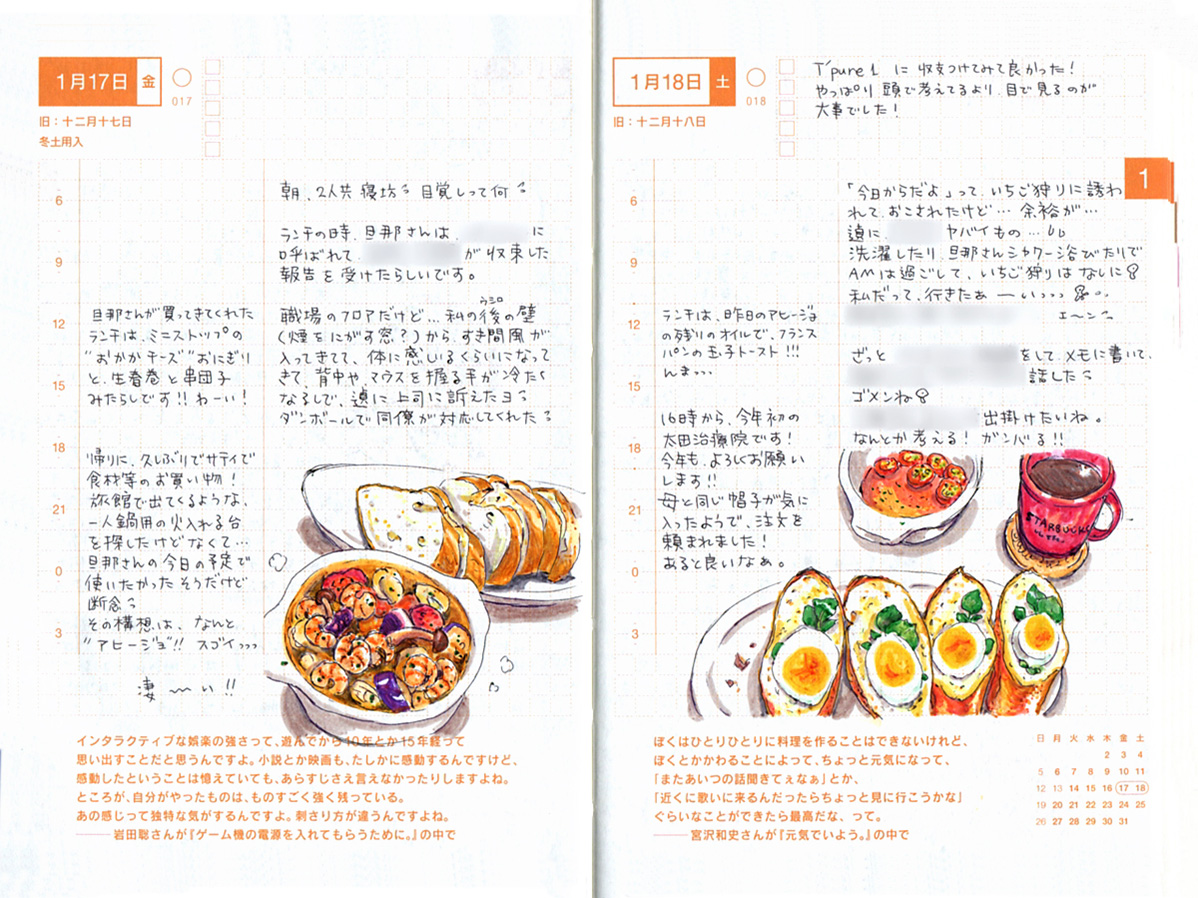 1月17日 金
017
旧：十二月十七日
冬土用入
朝、2人共寝坊 目覚しって何
ランチの時、旦那さんは、 に
呼ばれて、 が収束した
報告を受けたらしいです。
旦那さんが買ってきてくれた
ランチは、ミニストップの
"おかかチーズ"おにぎり
と、生春巻と串団子
みたらしです!!わーい!
ウシロ
職場のフロアだけど…私の後の壁
(煙をにがす窓?)から、すき間風が
入ってきてて、体に感じるくらいになって
きて、背中や、マウスを握る手が冷たく
なるしで、遂に上司に訴えたヨ
ダンボールで同僚が対応してくれた
帰りに、久しぶりでサティで
食材等のお買い物!
旅館で出てくるような、
一人鍋用の火入れる台
を探したけどなくて…
旦那さんの今日の予定で
使いたかったそうだけど
断念
その構想は、なんと
"アヒージョ"!!スゴイっっっ
凄〜い!!
6
9
12
15
18
21
0
3
インタラクティブな娯楽の強さって、遊んでから10年とか15年経って
思い出すことだと思うんですよ。小説とか映画も、たしかに感動するんですけど、
感動したということは憶えていても、あらすじさえ言えなかったりしますよね。
ところが、自分がやったものは、ものすごく強く残っている。
あの感じって独特な気がするんですよ。刺さり方が違うんですよね。
——岩田聡さんが『ゲーム機の電源を入れてもらうために。』の中で
1月18日 土
018
旧：十二月十八日
T'pure 1 に収支つけてみて良かった!
やっぱり、頭で考えてるより、目で見るのが
大事でした!
1
「今日からだよ」って、いちご狩りに誘わ
れて、おこされたけど…余裕が…
遠に、 ヤバイもの…
洗濯したり、旦那さんシャワー浴びたりで
AMは過ごして、いちご狩りはなしに
私だって、行きたぁーいっっっ
エーン
ざっと をして、メモに書いて、
話した
ゴメンね
出掛けたいね。
なんとか考える!ガンバる!!
ランチは、昨日のアヒージョ
の残りのオイルで、フランス
パンの玉子トースト!!!
んまっっっ
16時から、今年初の
太田治療院です!
今年も、よろしくお願い
します!!
母と同じ帽子が気に
入ったようで、注文を
頼まれました!
あると良いなぁ。
6
9
12
15
18
21
0
3
STARBUCKS
ぼくはひとりひとりに料理を作ることはできないけれど、
ぼくとかかわることによって、ちょっと元気になって、
「またあいつの話聞きてぇなぁ」とか、
「近くに歌いに来るんだったらちょっと見に行こうかな」
ぐらいなことができたら最高だな、って。
——宮沢和史さんが『元気でいよう。』の中で
日 月 火 水 木 金 土
2 3 4
5 6 7 8 9 10 11
12 13 14 15 16 17 18
19 20 21 22 23 24 25
26 27 28 29 30 31